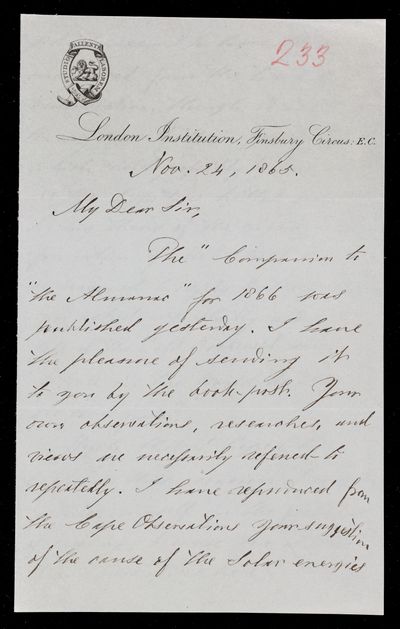 233
STUDIO FALLENTE LABOREM
London Institution, Finsbury Circus: E.C.
Nov. 24, 1865.
My Dear Sir,
The "Companion to
"the Almanac" for 1866 was
published yesterday. I have
the pleasure of sending it
to you by the book-post. Your
own observations, researches, and
views are necessarily referred to
repeatedly. I have reproduced from
the Cape Observations your suggestion
of the cause of the Solar energies